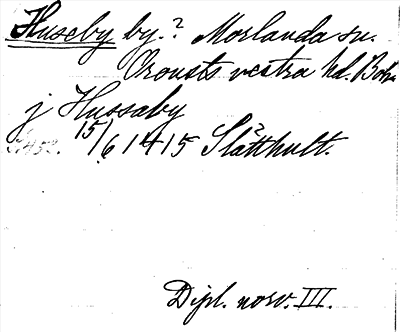 Huseby by.? Morlanda sn.
Orousts vestra hd. Bohu
j Hussaby
15/6 1415 Slåtthult.
Dipl. norv. III.